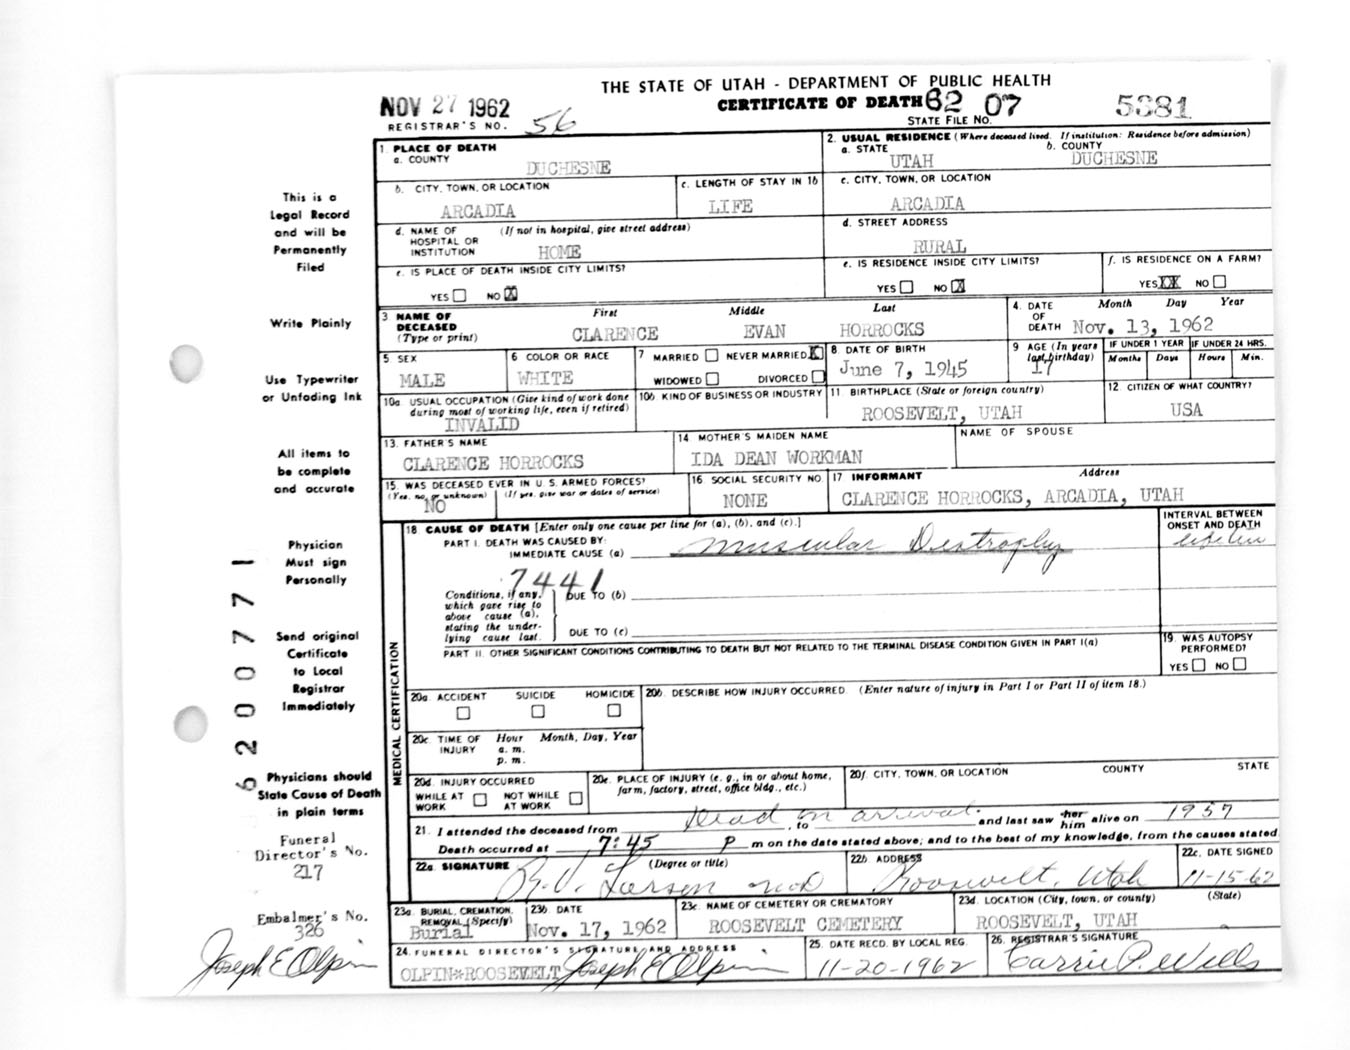 THE STATE OF UTAH - DEPARTMENT OF PUBLIC HEALTH
NOV 27 1962 CERTIFICATE OF DEATH 62 07 5381
REGISTRAR'S NO. 56 STATE FILE NO.
1. PLACE OF DEATH
a. COUNTY
DUCHESNE
2. USUAL RESIDENCE (Where deceased lived. If institution: Residence before admission)
a. STATE b. COUNTY
UTAH DUCHESNE
b. CITY, TOWN, OR LOCATION
ARCADIA
c. LENGTH OF STAY IN 1b
LIFE
c. CITY, TOWN, OR LOCATION
ARCADIA
d. NAME OF (If not in hospital, give street address)
HOSPITAL OR
INSTITUTION HOME
d. STREET ADDRESS
RURAL
e. IS PLACE OF DEATH INSIDE CITY LIMITS?
YES NO X
e. IS RESIDENCE INSIDE CITY LIMITS?
YES NO X
f. IS RESIDENCE ON A FARM?
YES XX NO
3 NAME OF First Middle Last
DECEASED
(Type or print) CLARENCE EVAN HORROCKS
4. DATE Month Day Year
OF
DEATH Nov. 13, 1962
5 SEX
MALE
6 COLOR OR RACE
WHITE
7 MARRIED NEVER MARRIED X
WIDOWED DIVORCED
8. DATE OF BIRTH
June 7, 1945
9 AGE (In years
last birthday)
17
IF UNDER 1 YEAR IF UNDER 24 HRS.
Months Days Hours Min.
10a. USUAL OCCUPATION (Give kind of work done
during most of working life, even if retired)
INVALID
10b KIND OF BUSINESS OR INDUSTRY
11 BIRTHPLACE (State or foreign country)
ROOSEVELT, UTAH
12 CITIZEN OF WHAT COUNTRY?
USA
13. FATHER'S NAME
CLARENCE HORROCKS
14 MOTHER'S MAIDEN NAME
IDA DEAN WORKMAN
NAME OF SPOUSE
15. WAS DECEASED EVER IN U. S. ARMED FORCES?
(Yes, no, or unknown) (If yes, give war or dates of service)
NO
16 SOCIAL SECURITY NO.
NONE
17 INFORMANT Address
CLARENCE HORROCKS, ARCADIA, UTAH
MEDICAL CERTIFICATION
18 CAUSE OF DEATH [Enter only one cause per line for (a), (b), and (c).]
PART I. DEATH WAS CAUSED BY:
IMMEDIATE CAUSE (a) Muscular Distrophy
INTERVAL BETWEEN
ONSET AND DEATH
7441
Conditions, if any,
which gave rise to
above cause (a),
stating the under-
lying cause last.
DUE TO (b)
DUE TO (c)
PART II. OTHER SIGNIFICANT CONDITIONS CONTRIBUTING TO DEATH BUT NOT RELATED TO THE TERMINAL DISEASE CONDITION GIVEN IN PART I(a)
19. WAS AUTOPSY
PERFORMED?
YES NO
20a. ACCIDENT SUICIDE HOMICIDE
20b. DESCRIBE HOW INJURY OCCURRED (Enter nature of injury in Part I or Part II of item 18.)
20c. TIME OF Hour Month, Day, Year
INJURY a. m.
p. m.
20d. INJURY OCCURRED
WHILE AT NOT WHILE
WORK AT WORK
20e. PLACE OF INJURY (e. g., in or about home,
farm, factory, street, office bldg., etc.)
20f. CITY, TOWN, OR LOCATION COUNTY STATE
21. I attended the deceased from Dead on arrival, to and last saw her him alive on 1957
Death occurred at 7:45 P m on the date stated above; and to the best of my knowledge, from the causes stated.
22a. SIGNATURE (Degree or title)
R.V. Larsen MD
22b. ADDRESS
Roosevelt, Utah
22c. DATE SIGNED
11-15-62
23a. BURIAL, CREMATION,
REMOVAL (Specify)
Burial
23b. DATE
Nov. 17, 1962
23c NAME OF CEMETERY OR CREMATORY
ROOSEVELT CEMETERY
23d. LOCATION (City, town, or county) (State)
ROOSEVELT, UTAH
24. FUNERAL DIRECTOR'S SIGNATURE AND ADDRESS
OLPIN*ROOSEVELT Joseph E Olpin
25. DATE RECD. BY LOCAL REG.
11-20-1962
26. REGISTRAR'S SIGNATURE
Carrie P. Wills
This is a
Legal Record
and will be
Permanently
Filed
Write Plainly
Use Typewriter
or Unfading Ink
All items to
be complete
and accurate
Physician
Must sign
Personally
Send original
Certificate
to Local
Registrar
Immediately
Physicians should
State Cause of Death
in plain terms
Funeral
Director's No.
217
Embalmer's No.
326
Joseph E Olpin
6200771